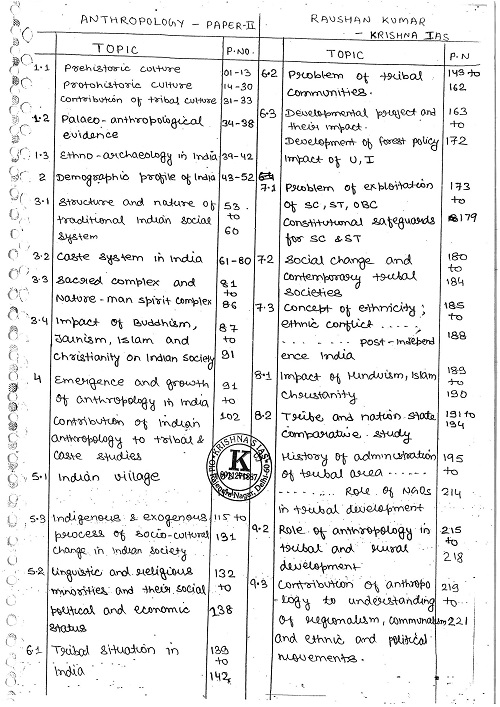 ANTHROPOLOGY - PAPER-II
RAUSHAN KUMAR
- KRISHNA IAS
TOPIC P.NO.
1.1 Prehistoric culture 01-13
Protohistoric culture 14-30
Contribution of tribal culture 31-33
1.2 Palaeo-anthropological 34-38
evidence
1.3 Ethno-archaeology in India 39-42
2 Demographic profile of India 43-52
3.1 Structure and nature of 53
traditional Indian social to
system 60
3.2 Caste system in India 61-80
3.3 Sacred complex and 81
Nature-man spirit complex to
86
3.4 Impact of Buddhism, 87
Jainism, Islam and to
Christianity on Indian Society 91
4 Emergence and growth 91
of anthropology in India to
Contribution of Indian 102
anthropology to tribal &
caste studies
5.1 Indian village
5.3 Indigenous & exogenous 115 to
process of socio-cultural 131
change in Indian society
5.2 Linguistic and religious 132
minorities and their social to
political and economic 138
status
6.1 Tribal situation in 139
India to
142
TOPIC P.N
6.2 Problem of tribal 143 to
communities. 162
6.3 Developmental project and 163
their impact. to
Development of forest policy 172
impact of U, I
7.1 Problem of exploitation 173
of SC, ST, OBC to
Constitutional safeguards 179
for SC & ST
7.2 Social change and 180
contemporary tribal to
societies 184
7.3 Concept of ethnicity; 185
ethnic conflict ..... to
........ post-independ 188
ence India
8.1 Impact of Hinduism, Islam 189
Christianity to
190
8.2 Tribe and nation state 191 to
comparative study 194
History of administration 195
of tribal area ...... to
........ Role of NGOs 214
in tribal development
9.2 Role of anthropology in 215
tribal and rural to
development 218
9.3 Contribution of anthropo 219
-logy to understanding to
of regionalism, communalism 221
and ethnic and political
movements.
KRISHNA'S IAS
K
Rajendra Nagar, Delhi-60